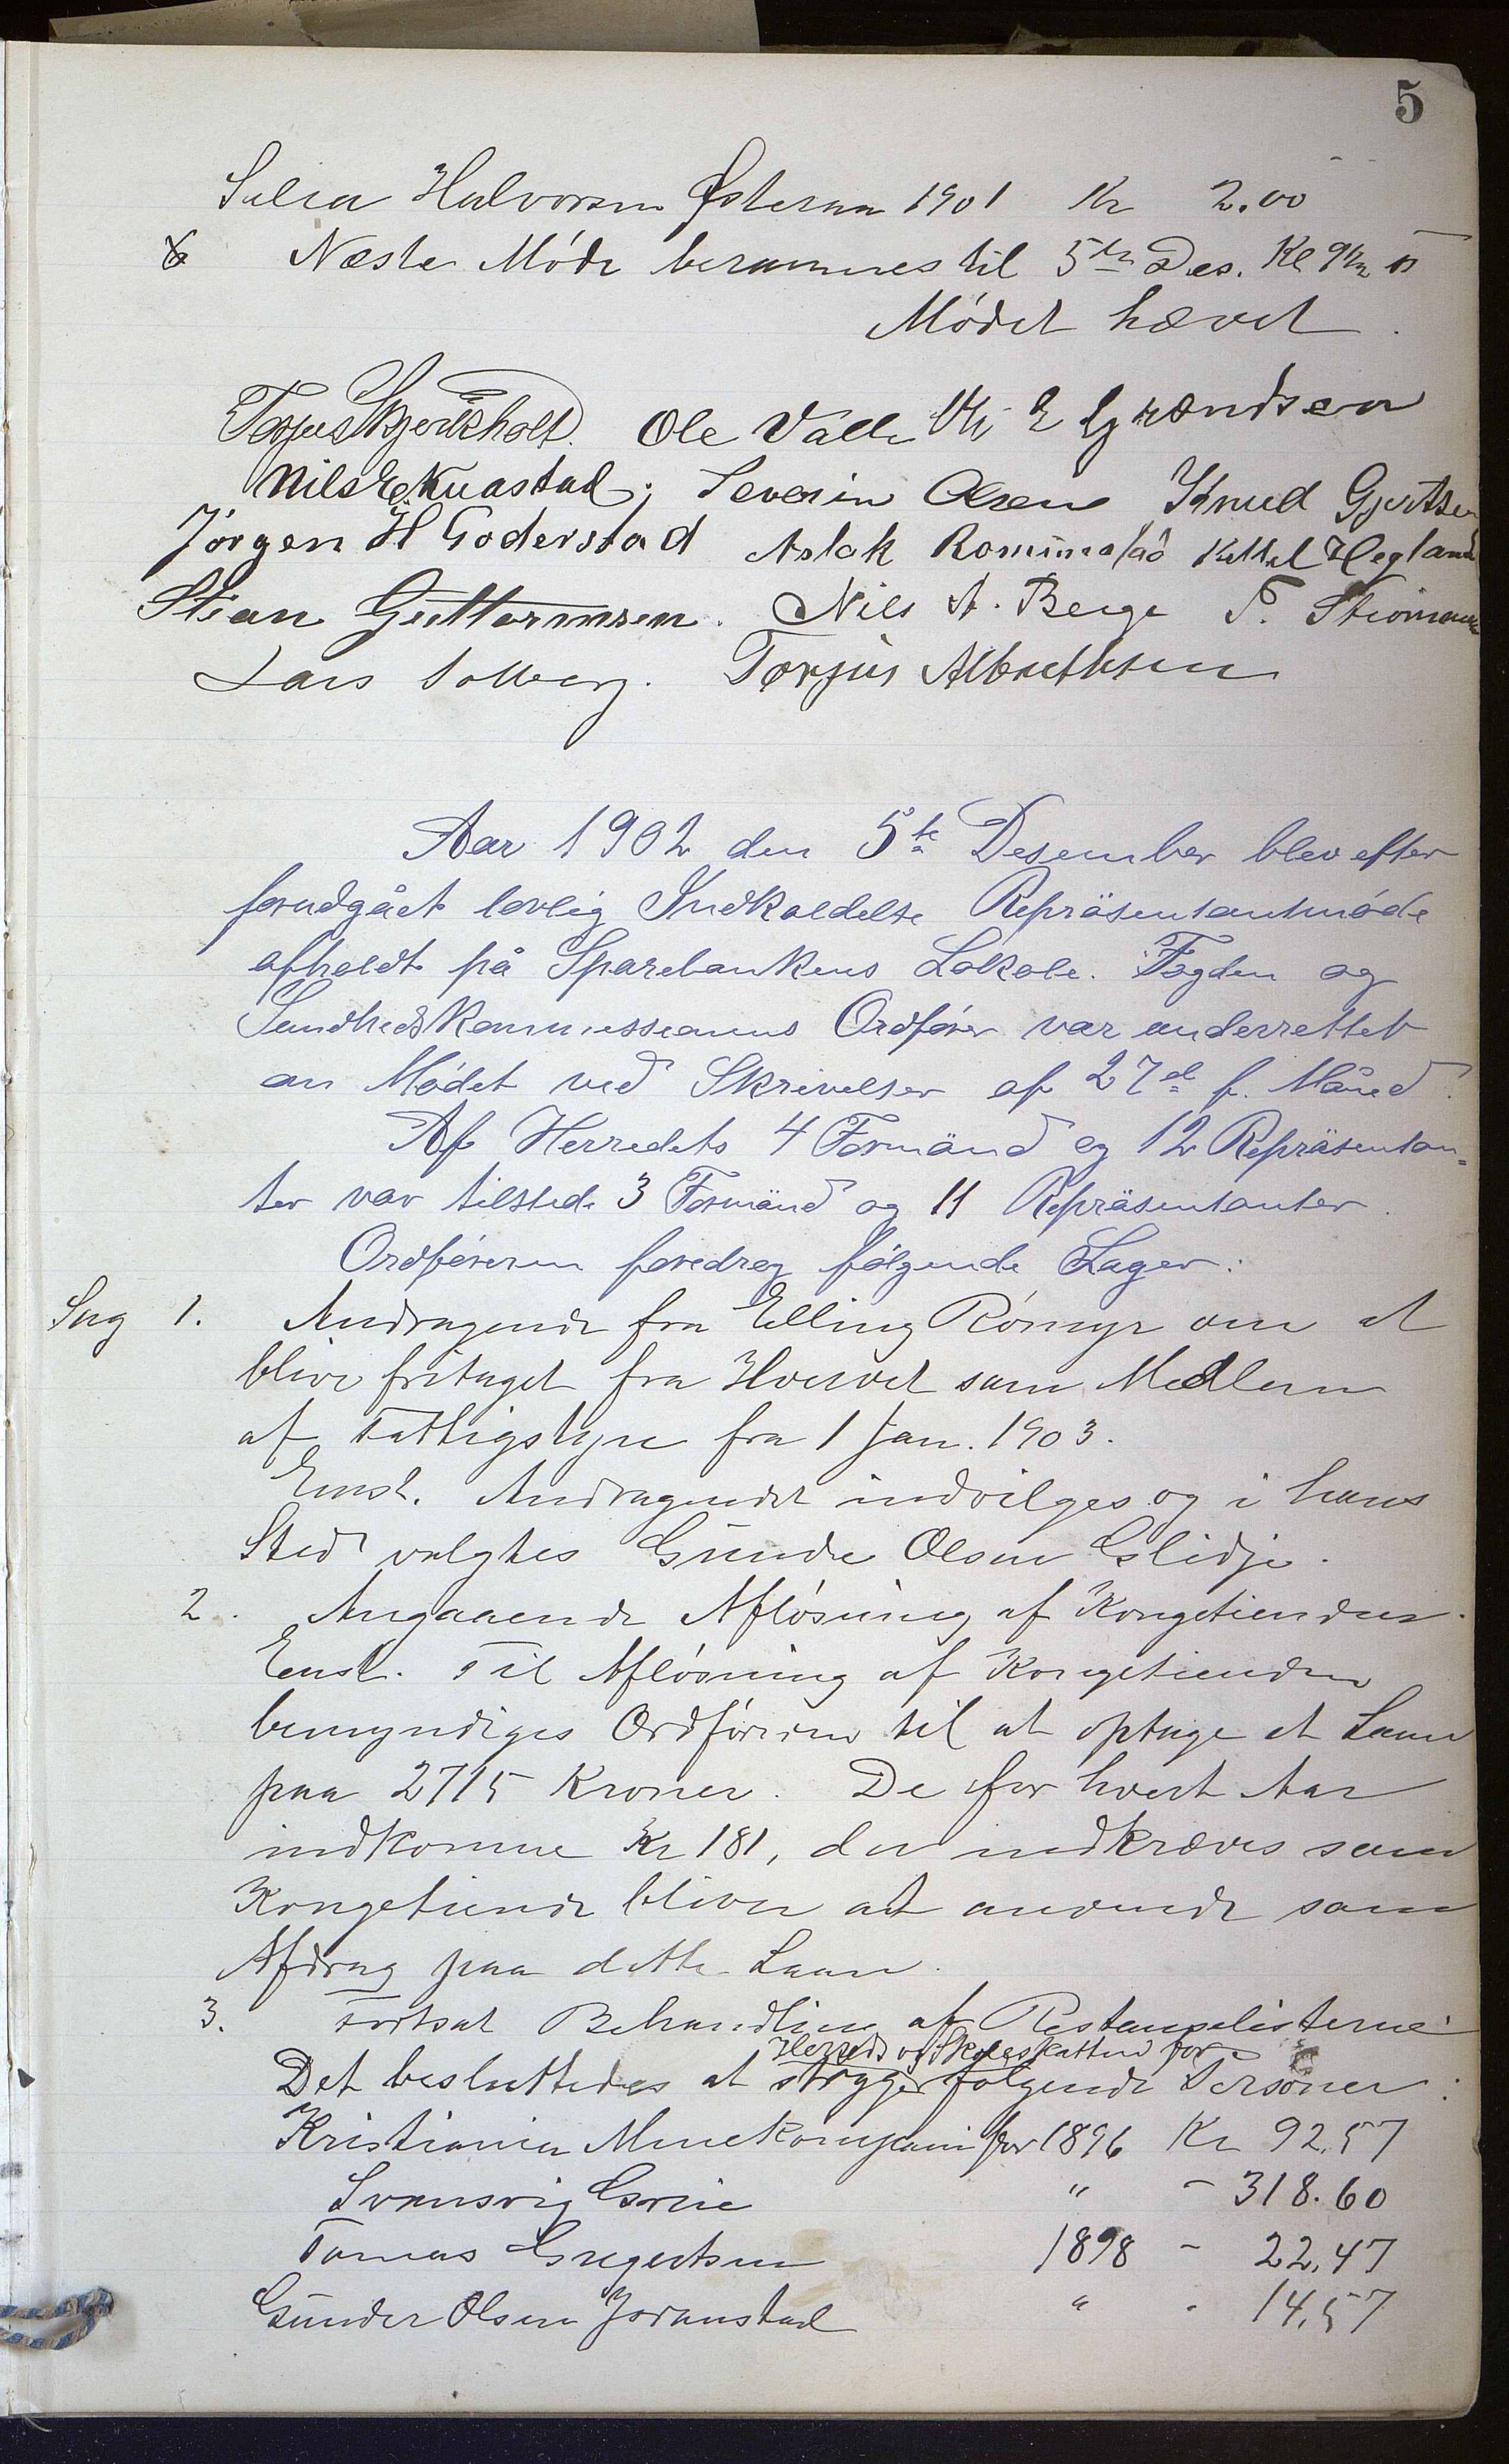 5
Selia Halvorsen Østeraa 1901 Kr 2.00
Næste Møde berammes til 5te Des. Kl 9
Mødet hævet.
Terjus Skjerkholt. Ole Valle
Nils E Kuastad. Severin Olsen Knud Gjertsen
Jørgen H Goderstad Aslak Kittel Hegland
Stian Guttormsen. Nils A. Berge T.
Lars Solberg. Torjus Albrethsen
Aar 1902 den 5te Desember blev efter
forudgået lovlig Indkaldelse Repräsentantmøde
afholdt på Sparebankens Lokale. Fogden og
Sundhedskommissionens Ordfører var underrettet
om Mødet ved Skrivelser af 27de f. Måned.
Af Herredets 4 Formänd og 12 Repräsentan-
ter var tilstede 3 Formänd og 11 Repräsentanter.
Ordføreren foredrog følgende Sager:
Sag 1. Andragende fra Elling Rømyr om at
blive fritaget fra Hvervet som Medlem
af Fattigstyre fra 1 Jan. 1903.
Enst. Andragendet indvilges og i hans
Sted valgtes Gunder Olsen Glidje.
2. Angaaende Afløsning af Kongetienden.
Enst. Til Afløsning af Kongetienden
bemyndiges Ordføreren til at optage et Laan
paa 2715 Kroner. De for hvert Aar
indkomne Kr 181, der indkræves som
Kongetiende bliver at anvende som
Afdrag paa dette Laan.
3. Fortsat Behandling af Restanselisterne
Herreds og Skoleskatten for
Det besluttedes at stryge følgende Personer:
Kristiania Minekompani for 1896 Kr 92.57
Svensvig Grue " - 318.60
Tomas Gregertsen 1898 - 22.47
Gunder Olsen Joranstad " - 14.57